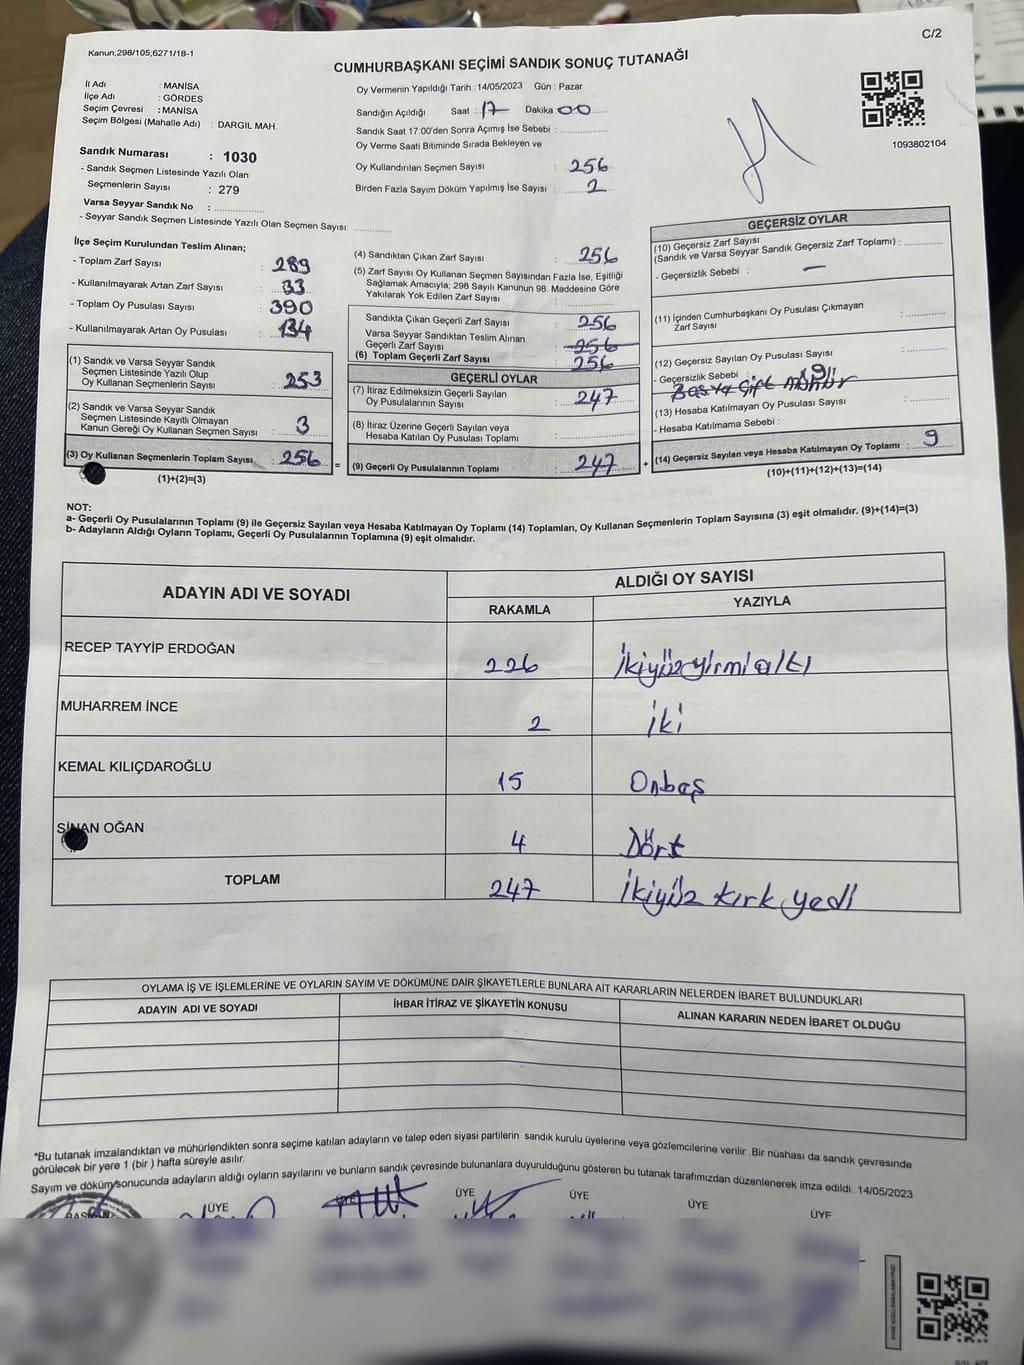 Kanun;298/105;6271/18-1
C/2
CUMHURBAŞKANI SEÇİMİ SANDIK SONUÇ TUTANAĞI
İl Adı : MANİSA
İlçe Adı : GÖRDES
Seçim Çevresi : MANİSA
Seçim Bölgesi (Mahalle Adı) : DARGIL MAH.
Sandık Numarası : 1030
- Sandık Seçmen Listesinde Yazılı Olan
Seçmenlerin Sayısı : 279
Varsa Seyyar Sandık No : ................
- Seyyar Sandık Seçmen Listesinde Yazılı Olan Seçmen Sayısı: ............
Oy Vermenin Yapıldığı Tarih : 14/05/2023 Gün : Pazar
Sandığın Açıldığı Saat : 17 Dakika 00
Sandık Saat 17:00'den Sonra Açımış İse Sebebi : ................
Oy Verme Saati Bitiminde Sırada Bekleyen ve
Oy Kullandırılan Seçmen Sayısı : 256
Birden Fazla Sayım Döküm Yapılmış İse Sayısı : 2
1093802104
İlçe Seçim Kurulundan Teslim Alınan;
- Toplam Zarf Sayısı : 289
- Kullanılmayarak Artan Zarf Sayısı : 33
- Toplam Oy Pusulası Sayısı : 390
- Kullanılmayarak Artan Oy Pusulası : 134
(1) Sandık ve Varsa Seyyar Sandık
Seçmen Listesinde Yazılı Olup
Oy Kullanan Seçmenlerin Sayısı : 253
(2) Sandık ve Varsa Seyyar Sandık
Seçmen Listesinde Kayıtlı Olmayan
Kanun Gereği Oy Kullanan Seçmen Sayısı : 3
(3) Oy Kullanan Seçmenlerin Toplam Sayısı : 256
(1)+(2)=(3)
(4) Sandıktan Çıkan Zarf Sayısı : 256
(5) Zarf Sayısı Oy Kullanan Seçmen Sayısından Fazla İse, Eşitliği
Sağlamak Amacıyla; 298 Sayılı Kanunun 98. Maddesine Göre
Yakılarak Yok Edilen Zarf Sayısı : ............
Sandıkta Çıkan Geçerli Zarf Sayısı : 256
Varsa Seyyar Sandıktan Teslim Alınan
Geçerli Zarf Sayısı : 256
(6) Toplam Geçerli Zarf Sayısı 256
GEÇERLİ OYLAR
(7) İtiraz Edilmeksizin Geçerli Sayılan
Oy Pusulalarının Sayısı : 247
(8) İtiraz Üzerine Geçerli Sayılan veya
Hesaba Katılan Oy Pusulası Toplamı : ............
= (9) Geçerli Oy Pusulalarının Toplamı : 247
GEÇERSİZ OYLAR
(10) Geçersiz Zarf Sayısı
(Sandık ve Varsa Seyyar Sandık Geçersiz Zarf Toplamı) : ............
- Geçersizlik Sebebi : —
(11) İçinden Cumhurbaşkanı Oy Pusulası Çıkmayan
Zarf Sayısı : ............
(12) Geçersiz Sayılan Oy Pusulası Sayısı : ............
9
- Geçersizlik Sebebi : Boş ya çift mühür
(13) Hesaba Katılmayan Oy Pusulası Sayısı : ............
- Hesaba Katılmama Sebebi :
+ (14) Geçersiz Sayılan veya Hesaba Katılmayan Oy Toplamı : 9
(10)+(11)+(12)+(13)=(14)
NOT:
a- Geçerli Oy Pusulalarının Toplamı (9) ile Geçersiz Sayılan veya Hesaba Katılmayan Oy Toplamı (14) Toplamları, Oy Kullanan Seçmenlerin Toplam Sayısına (3) eşit olmalıdır. (9)+(14)=(3)
b- Adayların Aldığı Oyların Toplamı, Geçerli Oy Pusulalarının Toplamına (9) eşit olmalıdır.
ADAYIN ADI VE SOYADI
ALDIĞI OY SAYISI
RAKAMLA YAZIYLA
RECEP TAYYİP ERDOĞAN 226 İkiyüzyirmialtı
MUHARREM İNCE 2 İki
KEMAL KILIÇDAROĞLU 15 Onbeş
SİNAN OĞAN 4 Dört
TOPLAM 247 İkiyüz kırk yedi
OYLAMA İŞ VE İŞLEMLERİNE VE OYLARIN SAYIM VE DÖKÜMÜNE DAİR ŞİKAYETLERLE BUNLARA AİT KARARLARIN NELERDEN İBARET BULUNDUKLARI
ADAYIN ADI VE SOYADI İHBAR İTİRAZ VE ŞİKAYETİN KONUSU ALINAN KARARIN NEDEN İBARET OLDUĞU
*Bu tutanak imzalandıktan ve mühürlendikten sonra seçime katılan adayların ve talep eden siyasi partilerin sandık kurulu üyelerine veya gözlemcilerine verilir .Bir nüshası da sandık çevresinde
görülecek bir yere 1 (bir ) hafta süreyle asılır.
Sayım ve döküm sonucunda adayların aldığı oyların sayılarını ve bunların sandık çevresinde bulunanlara duyurulduğunu gösteren bu tutanak tarafımızdan düzenlenerek imza edildi. 14/05/2023
BAŞKAN ÜYE ÜYE ÜYE ÜYE ÜYE ÜYE